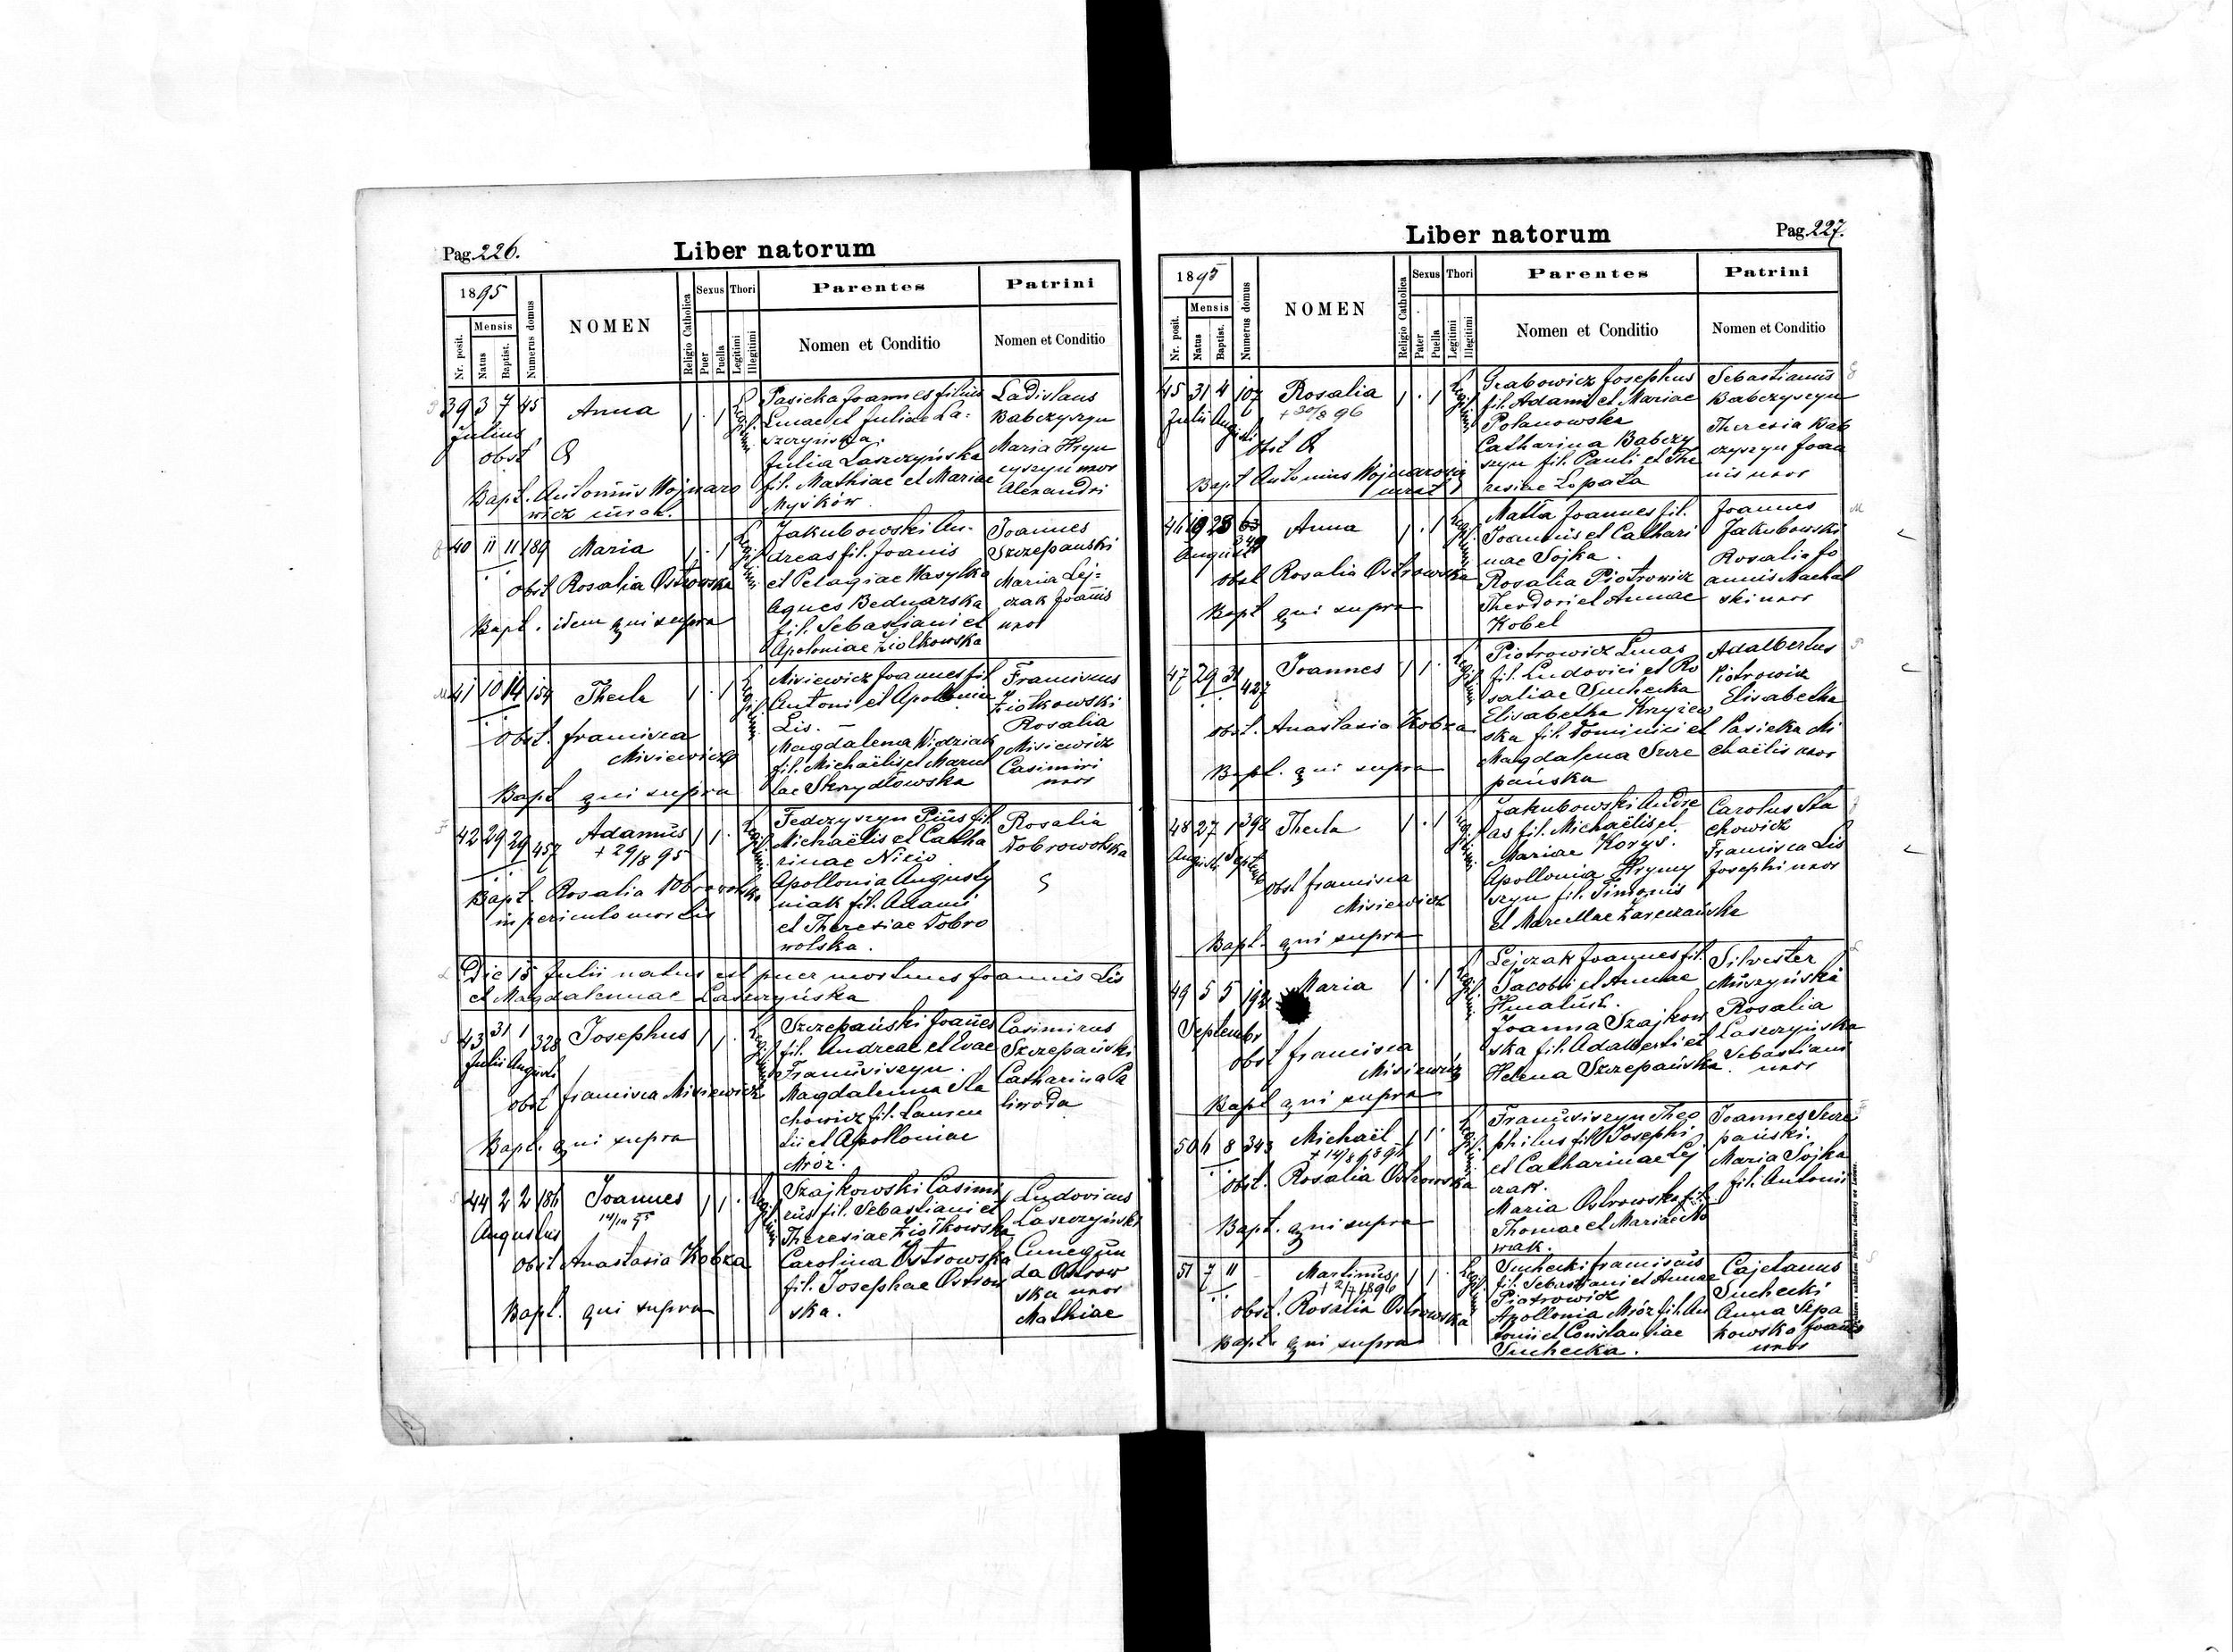 Pag. 226.
Liber natorum
1895
Nr. posit.
Mensis
Natus
Baptist.
Numerus domus
NOMEN
Religio Catholica
Sexus
Puer
Puella
Thori
Legitimi
Illegitimi
Parentes
Nomen et Conditio
Patrini
Nomen et Conditio
39 3 7 45 Anna 1 . 1
Julius
obst
Bapt. Antonius Wojnaro
wicz
Pasieka Joannes filius
Lucae et Juliae La-
szczyńska.
Julia Laszczyńska
fil. Mathiae et Mariae
Myśków
Ladislaus
Babczyszyn
Maria Hryn
cyszyn uxor
Alexandri
40 11 11 189 Maria 1 . 1
obst Rosalia Ostrowska
Bapt. idem qui supra
Jakubowski An-
dreas fil. Joanis
et Pelagiae Wasylko
Agnes Bednarska
fil. Sebastiani et
Apoloniae Ziolkowska
Joannes
Szczepański
Maria Lej=
czak Joannis
uxor
41 10 14 154 Thecla 1 . 1
obst. francisca
Misiewicz
Bapt qui supra
Misiewicz Joannes fil
Antoni et Apolonia
Lis.
Magdalena Widziak
fil. Michaëlis et Marcel
lae Skrydłowska
Franciscus
Ziołkowski
Rosalia
Misiewicz
Casimiri
uxor
42 29 29 457 Adamus 1 1 .
+ 29/8 95
Bapt. Rosalia Dobrowolska
in periculo mortis
Fedczyszyn Pius fil.
Michaëlis et Catha
rinae Nicio
Apollonia Augusty
niak fil. Adami
et Theresiae Dobro
wolska.
Rosalia
Dobrowolska
Die 15 Julii natus est puer mortuus Joannis Lis
et Magdalennae Laszczyńska
43 31 1 328 Josephus 1 1 .
Julii Augusti
obst francisca Misiewicz
Bapt. qui supra
Szczepański Joañes
fil. Andreae et Evae
Franciszyn.
Magdalenna Sta
chowicz fil. Lauren
tii et Apolloniae
Mróz.
Casimirus
Szczepański
Catharina Pa
liwoda
44 2 2 186 Joannes 1 1 .
Augustus
obst Anastasia Kobza
Bapt. qui supra
Szajkowski Casimi
rus fil. Sebastiani et
Theresiae Ziołkowska
Carolina Ostrowska
fil. Josephae Ostrow
ska.
Ludovicus
Laszczyński
Cunegun
da Ostrow
ska uxor
Mathiae
Liber natorum
Pag. 227.
1895
Nr. posit.
Mensis
Natus
Baptist.
Numerus domus
NOMEN
Religio Catholica
Sexus
Pater
Puella
Thori
Legitimi
Illegitimi
Parentes
Nomen et Conditio
Patrini
Nomen et Conditio
45 31 4 107 Rosalia 1 . 1
+ 30/8 96
Julii Augusti
obst
Bapt Antonius Wojnarowicz
Grabowicz Josephus
fil. Adami et Mariae
Polanowska
Catharina Babczy
szyn fil. Pauli et The
resiae Łopata
Sebastianus
Babczyszyn
Theresia Bab
czyszyn Joan
nis uxor
46 19 23 Anna 1 . 1
Augusti
obst Rosalia Ostrowska
Bapt qui supra
Malta Joannes fil.
Joannis et Cathari
nae Sojka.
Rosalia Piotrowicz
Theodori et Annae
Kobel
Joannes
Jakubowski
Rosalia Jo
annis Machal
ski uxor
47 29 31 427 Joannes 1 1 .
obst. Anastasia Kobza
Bapt. qui supra
Piotrowicz Lucas
fil. Ludovici et Ro
saliae Suchecka
Elisabetha Krzyżew
ska fil. Dominici et
Magdalena Szcze
pańska
Adalbertus
Piotrowicz
Elisabetha
Pasieka Mi
chaëlis uxor
48 27 1 398 Thecla 1 . 1
Augusti Septemb
obst francisca
Misiewicz
Bapt. qui supra
Jakubowski Andre
as fil. Michaëlis et
Mariae Korys.
Apollonia Hryncy
szyn fil. Timonis
et Marcellae Zarczańska
Carolus Sta
chowicz
Francisca Lis
Josephi uxor
49 5 5 192 Maria 1 . 1
Septembr
obst francisca
Misiewicz
Bapt qui supra
Lejczak Joannes fil.
Jacobi et Annae
Hnatiuk.
Joanna Szajkow
ska fil. Adalberti et
Helena Szczepańska.
Silvester
Muszyński
Rosalia
Laszczyńska
Sebastiani
uxor
50 6 8 343 Michaël 1 1 .
obst. Rosalia Ostrowska
Bapt. qui supra
Franciszyn Theo
philus fil Josephi
et Catharinae Lej
czak.
Maria Ostrowska fil.
Thomae et Mariae No
wak.
Joannes Szcze
pański.
Maria Sojka
fil. Antonii
51 7 11 Martinus 1 1 .
+ 2/7 1896
obst. Rosalia Ostrowska
Bapt. qui supra
Suchecki franciscus
fil. Sebastiani et Annae
Piotrowicz
Apollonia Mróz fil. An
tonii et Constantiae
Suchecka.
Cajetanus
Suchecki
Anna Sepa
kowska Joannis
uxor